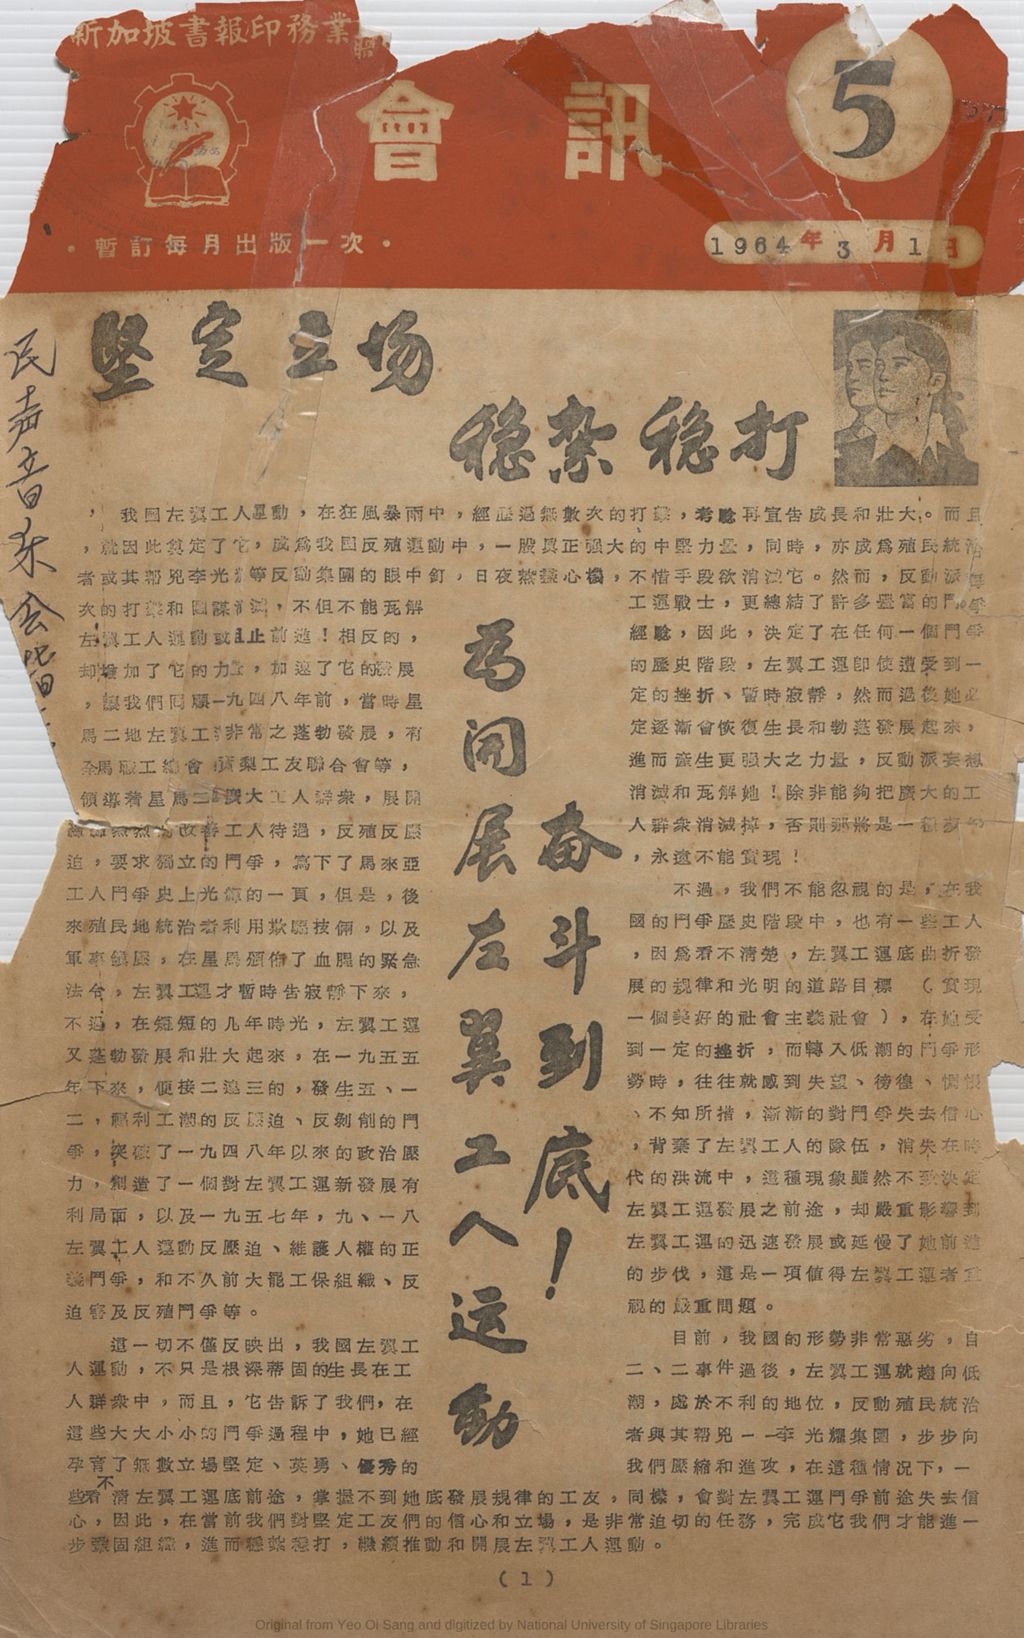 新加坡書報印務業
會訊
5
·暫訂每月出版一次·
1964年3月1日
坚定立场
稳紮稳打
为开展左翼工人运动
奋斗到底！
民声音乐会
，我國左翼工人運動，在狂風暴雨中，經歷過無數次的打擊，考驗再宣告成長和壯大。而且
，就因此奠定了它，成爲我國反殖運動中，一股眞正强大的中堅力量，同時，亦成爲殖民統治
者或其幫兇李光 等反動集團的眼中釘，日夜煞費心機，不惜手段欲消滅它。然而，反動派每
次的打擊和圖謀消滅，不但不能瓦解
左翼工人運動或阻止前進！相反的，
却增加了它的力量，加速了它的發展
，讓我們囘顧一九四八年前，當時星
馬二地左翼工 非常之蓬勃發展，有
全馬職工總會，黃梨工友聯合會等，
領導着星馬二 廣大工人群衆，展開
改善工人待遇，反殖反壓
迫，要求獨立的鬥爭，寫下了馬來亞
工人鬥爭史上光輝的一頁，但是，後
來殖民地統治者利用欺騙技倆，以及
軍事鎮壓，在星馬頒佈了血腥的緊急
法令，左翼工運才暫時告寂靜下來，
不過，在短短的几年時光，左翼工運
又蓬勃發展和壯大起來，在一九五五
年下來，便接二連三的，發生五、一
二，福利工潮的反壓迫、反剝削的鬥
爭，突破了一九四八年以來的政治壓
力，創造了一個對左翼工運新發展有
利局面，以及一九五七年，九、一八
左翼工人運動反壓迫、維護人權的正
義鬥爭，和不久前大罷工保組織、反
迫害及反殖鬥爭等。
這一切不僅反映出，我國左翼工
人運動，不只是根深蒂固的生長在工
人群衆中，而且，它告訴了我們，在
這些大大小小的鬥爭過程中，她已經
孕育了無數立場堅定、英勇、優秀的
工運戰士，更總結了許多豐富的鬥爭
經驗，因此，決定了在任何一個鬥爭
的歷史階段，左翼工運卽使遭受到一
定的挫折、暫時寂靜，然而過後她必
定逐漸會恢復生長和勃蓬發展起來，
進而產生更强大之力量，反動派妄想
消滅和瓦解她！除非能夠把廣大的工
人群衆消滅掉，否則那將是一種夢想
，永遠不能實現！
不過，我們不能忽視的是，在我
國的鬥爭歷史階段中，也有一些工人
，因爲看不淸楚，左翼工運底曲折發
展的規律和光明的道路目標 （實現
一個美好的社會主義社會），在她受
到一定的挫折，而轉入低潮的鬥爭形
勢時，往往就感到失望、徬徨、惆悵
、不知所措，漸漸的對鬥爭失去信心
，背棄了左翼工人的隊伍，消失在時
代的洪流中，這種現象雖然不致決定
左翼工運發展之前途，却嚴重影響到
左翼工運的迅速發展或延慢了她前進
的步伐，這是一項值得左翼工運者重
視的嚴重問題。
目前，我國的形勢非常惡劣，自
二、二事件過後，左翼工運就趨向低
潮，處於不利的地位，反動殖民統治
者與其幫兇——李光耀集團，步步向
我們壓縮和進攻，在這種情况下，一
些看不淸左翼工運底前途，掌握不到她底發展規律的工友，同樣，會對左翼工運鬥爭前途失去信
心，因此，在當前我們對堅定工友們的信心和立場，是非常迫切的任務，完成它我們才能進一
步鞏固組織，進而穩紮穩打，繼續推動和開展左翼工人運動。
（1）
Original from Yeo Oi Sang and digitized by National University of Singapore Libraries